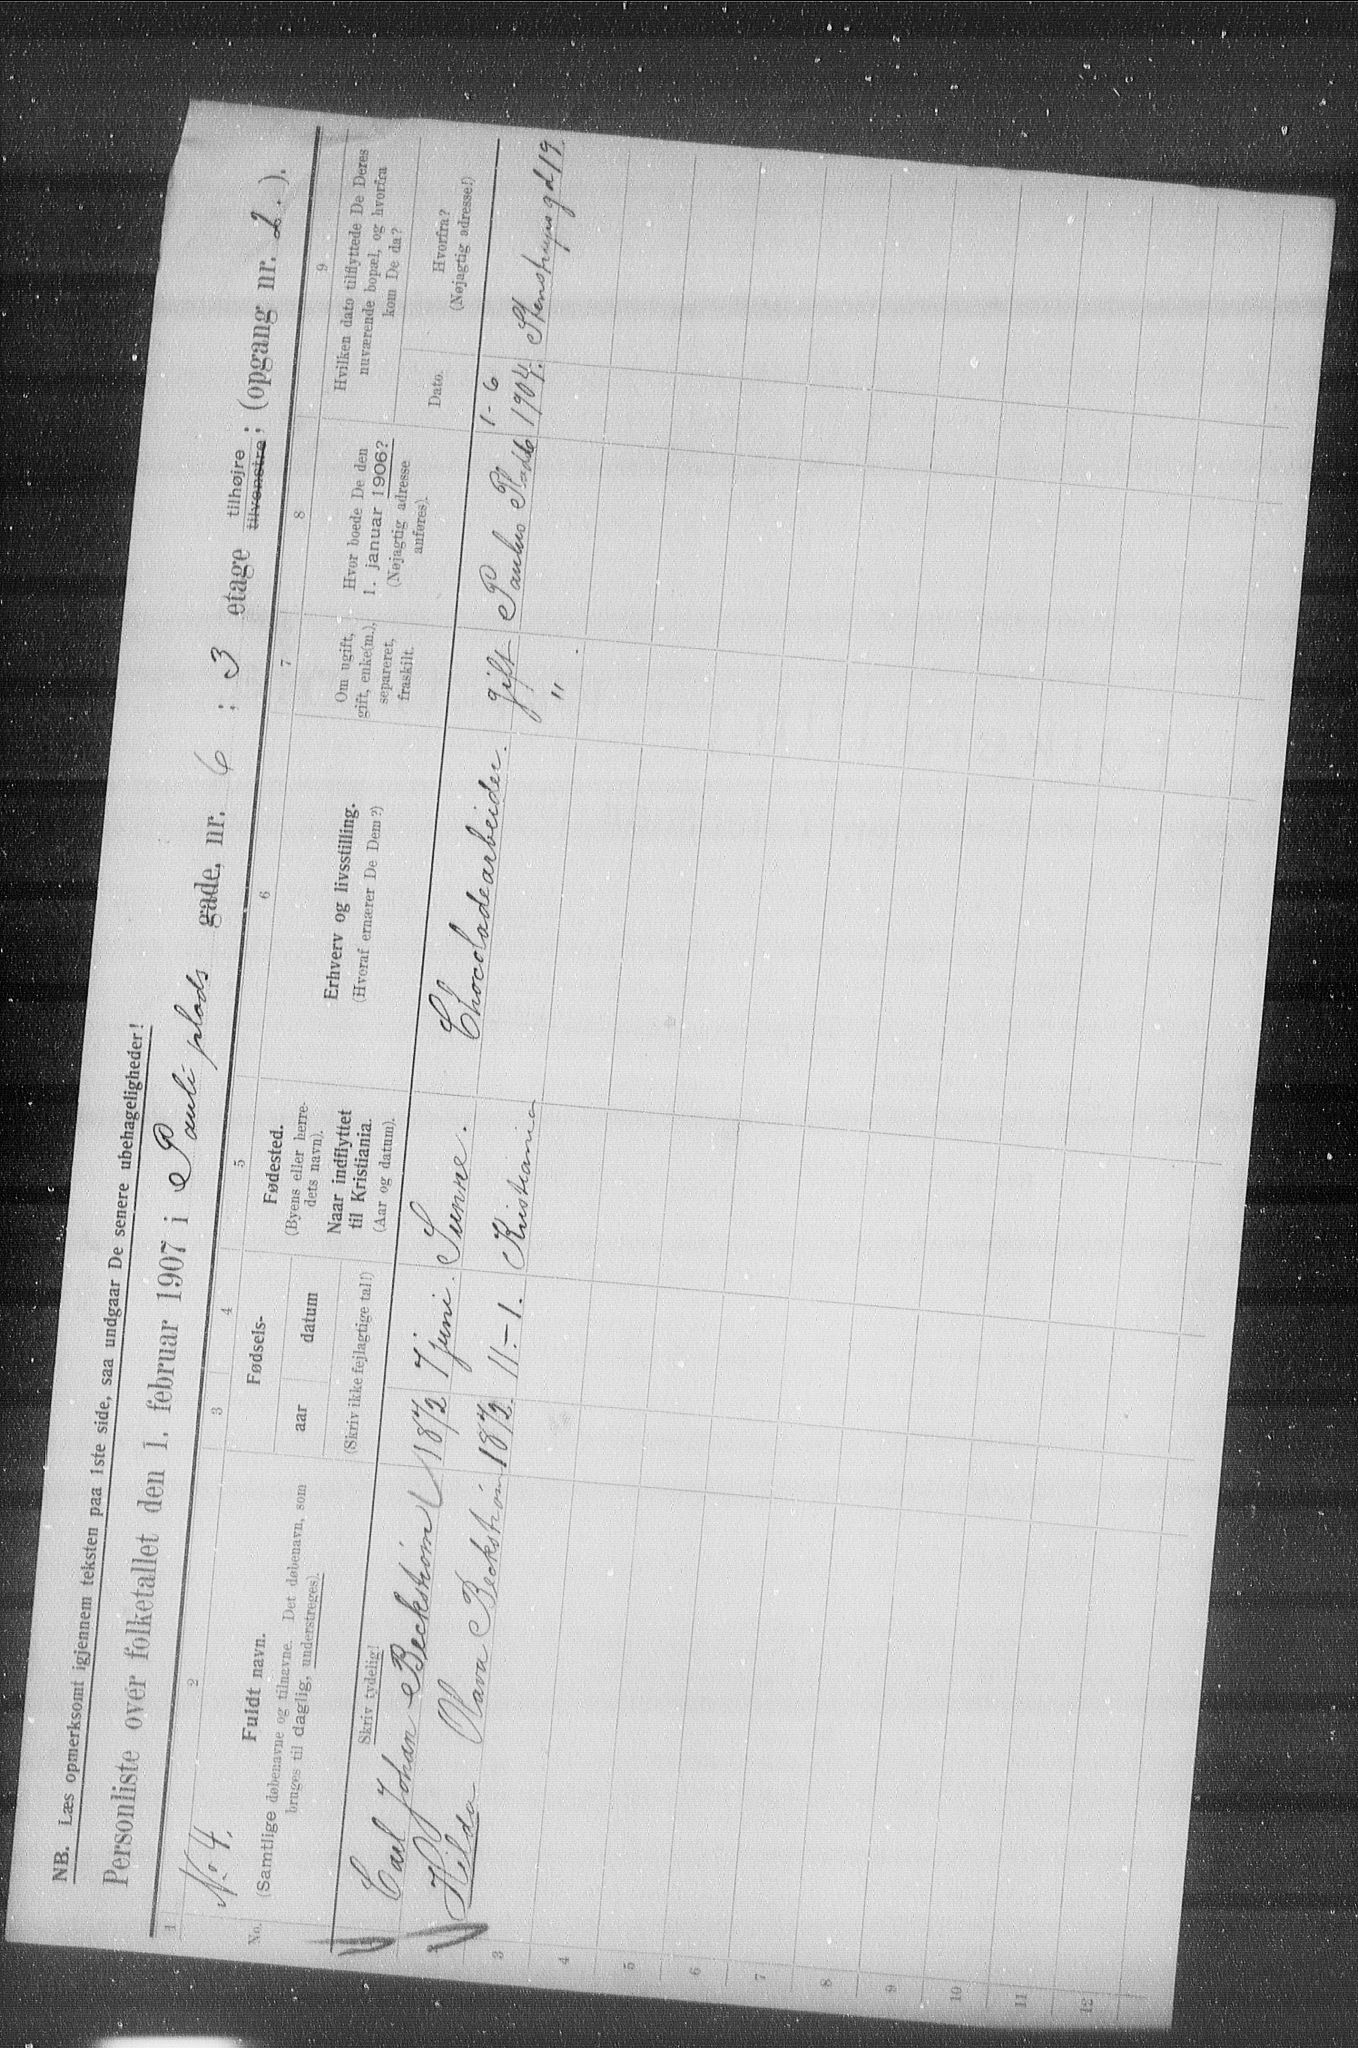 NB. Læs opmerksomt igjennem teksten paa 1ste side, saa undgaar De senere ubehageligheder!
Personliste over folketallet den 1. februar 1907 i Pauli plads gade, nr. 6 ; 3 etage tilhøjre tilvenstre; (opgang nr. 2.).
1 2 3 4 5 6 7 8 9
No. 4.
No.
Fuldt navn.
(Samtlige døbenavne og tilnavne. Det døbenavn, som
bruges til daglig, understreges).
Skriv tydelig!
Fødsels-
aar datum
(Skriv ikke fejlagtige tal!)
Fødested.
(Byens eller herre-
dets navn).
Naar indflyttet
til Kristiania.
(Aar og datum).
Erhverv og livsstilling.
(Hvoraf ernærer De Dem?)
Om ugift,
gift, enke(m.),
separeret,
fraskilt.
Hvor boede De den
1. januar 1906?
(Nøjagtig adresse
anføres).
Hvilken dato tilflyttede De Deres
nuværende bopæl, og hvorfra
kom De da?
Dato.
Hvorfra?
(Nøjagtig adresse!)
Carl Johan Beckström 1872 7 juni. Sunne. Chocoladearbeider. gift Paulus Plads 6 1-6 1904. Stenstrupsgd 19.
Hilda Olava Beckström 1872. 11.-1. Kristiania "
3
4
5
6
7
8
9
10
11
12